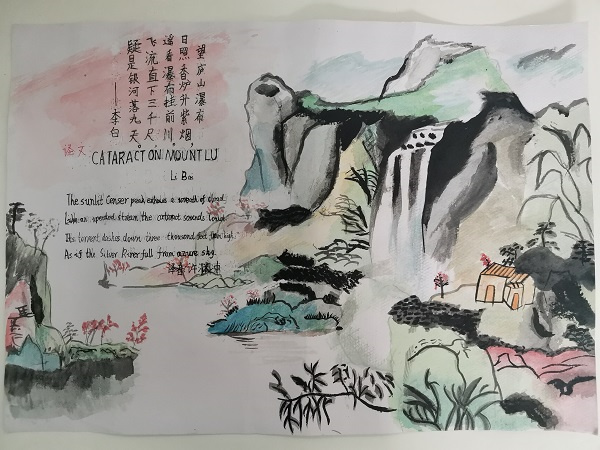 望庐山瀑布
日照香炉升紫烟
遥看瀑布挂前川
飞流直下三千尺
疑是银河落九天
——李白
译文
CATARACT ON MOUNT LU
Li Bai
The sunlit Censer peak exhales a wreath of cloud
Like an upended stream the cataract sounds loud
Its torrent dashes down three thousand feet from high.
As if the Silver River fall from azure sky.
许渊冲